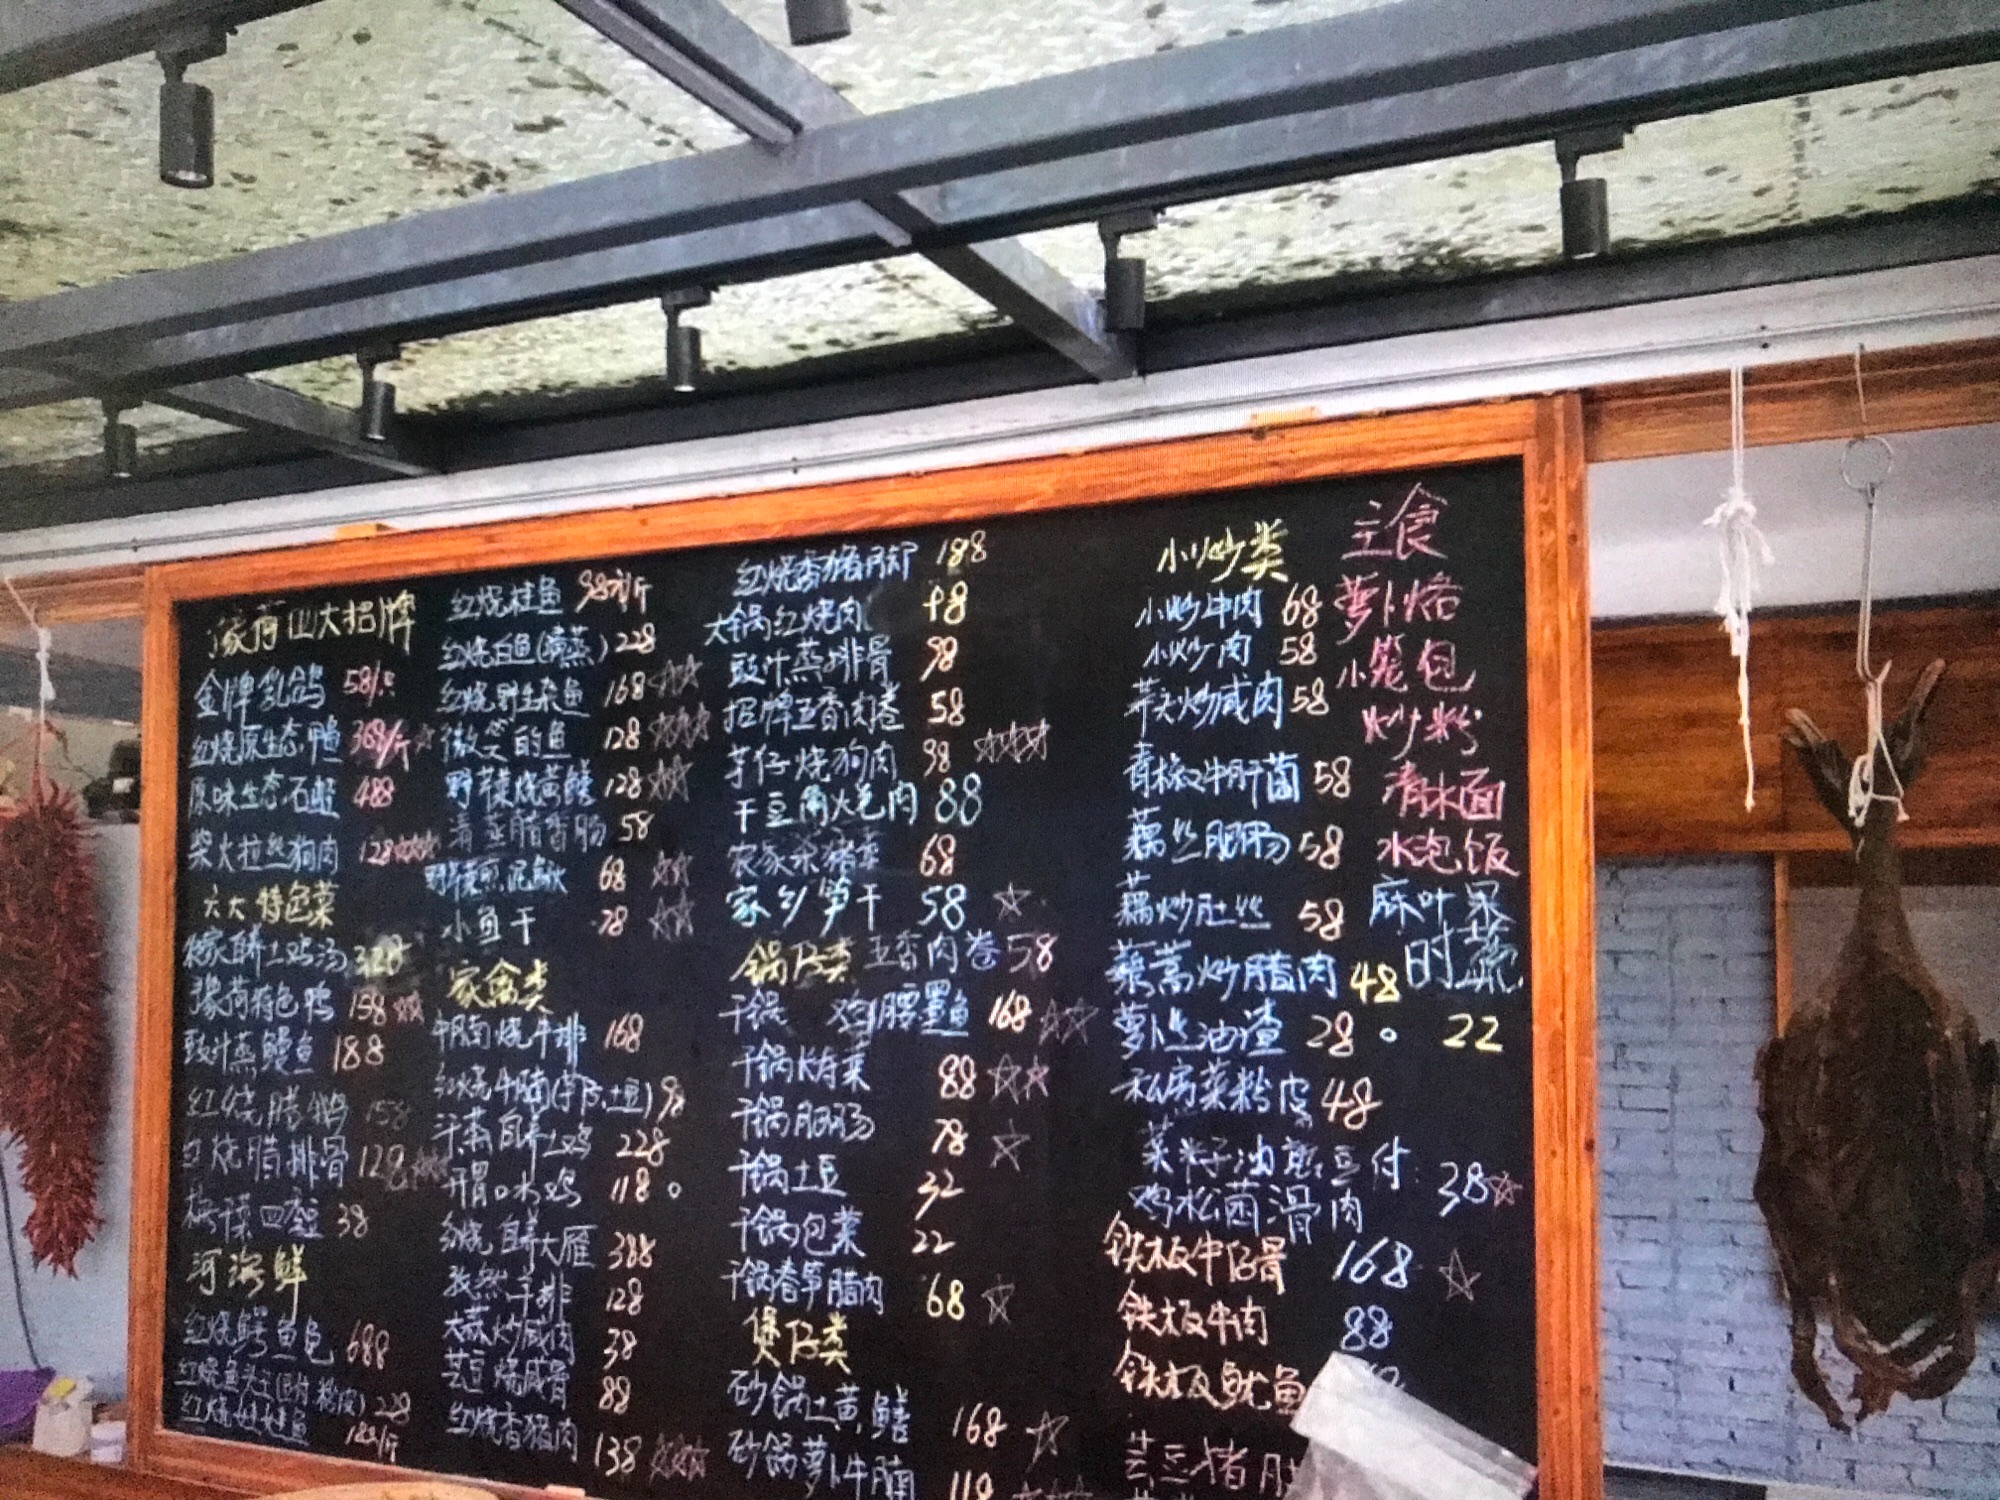 四大招牌
金牌乳鸽 58/只
红烧原生态鸭 368/斤
原味生态石 488
柴火拉丝狗肉 128
六大特色菜
自养土鸡汤 328
特色鸭 158
豉汁蒸鳗鱼 188
红烧腊鹅 158
红烧腊排骨 128
38
河海鲜
红烧鳄鱼龟 688
红烧鱼头王 228
红烧娃娃鱼
红烧桂鱼 98元/斤
红烧白鱼(清蒸) 228
红烧野生杂鱼 168
微笑的鱼 128
野菜烧黄鳝 128
清蒸腊香肠 58
泥鳅 68
小鱼干 78
家禽类
牛腩烧牛排 168
红烧牛腩(萝卜.土豆) 98
汗蒸自养土鸡 228
开胃口水鸡 118
红烧自养大雁 388
孜然羊排 128
大蒜炒咸肉 38
芸豆烧咸骨 88
红烧香猪肉 138
红烧香猪脚 188
大锅红烧肉
豉汁蒸排骨 98
招牌五香肉卷 58
芋仔烧狗肉 98
干豆角火包肉 88
农家杀猪菜 68
家乡笋干 58
锅仔类 五香肉卷 58
干锅 鸡腰墨鱼 168
干锅 88
干锅肥肠 78
干锅土豆 32
干锅包菜 22
干锅春笋腊肉 68
煲仔类
砂锅土黄鳝 168
砂锅萝卜牛腩
小炒类
小炒牛肉 68
小炒肉 58
芋头炒咸肉 58
青椒牛肝菌 58
藕丝肥肠 58
藕炒肚丝 58
藜蒿炒腊肉 48
萝卜丝油渣 28
私房菜粉皮 48
菜籽油煎豆付 38
鸡松菌滑肉
铁板牛仔骨 168
铁板牛肉 88
铁板鱿鱼
芸豆猪
主食
萝卜烙
小笼包
炒粉
清水面
水泡饭
麻叶果
时蔬
22